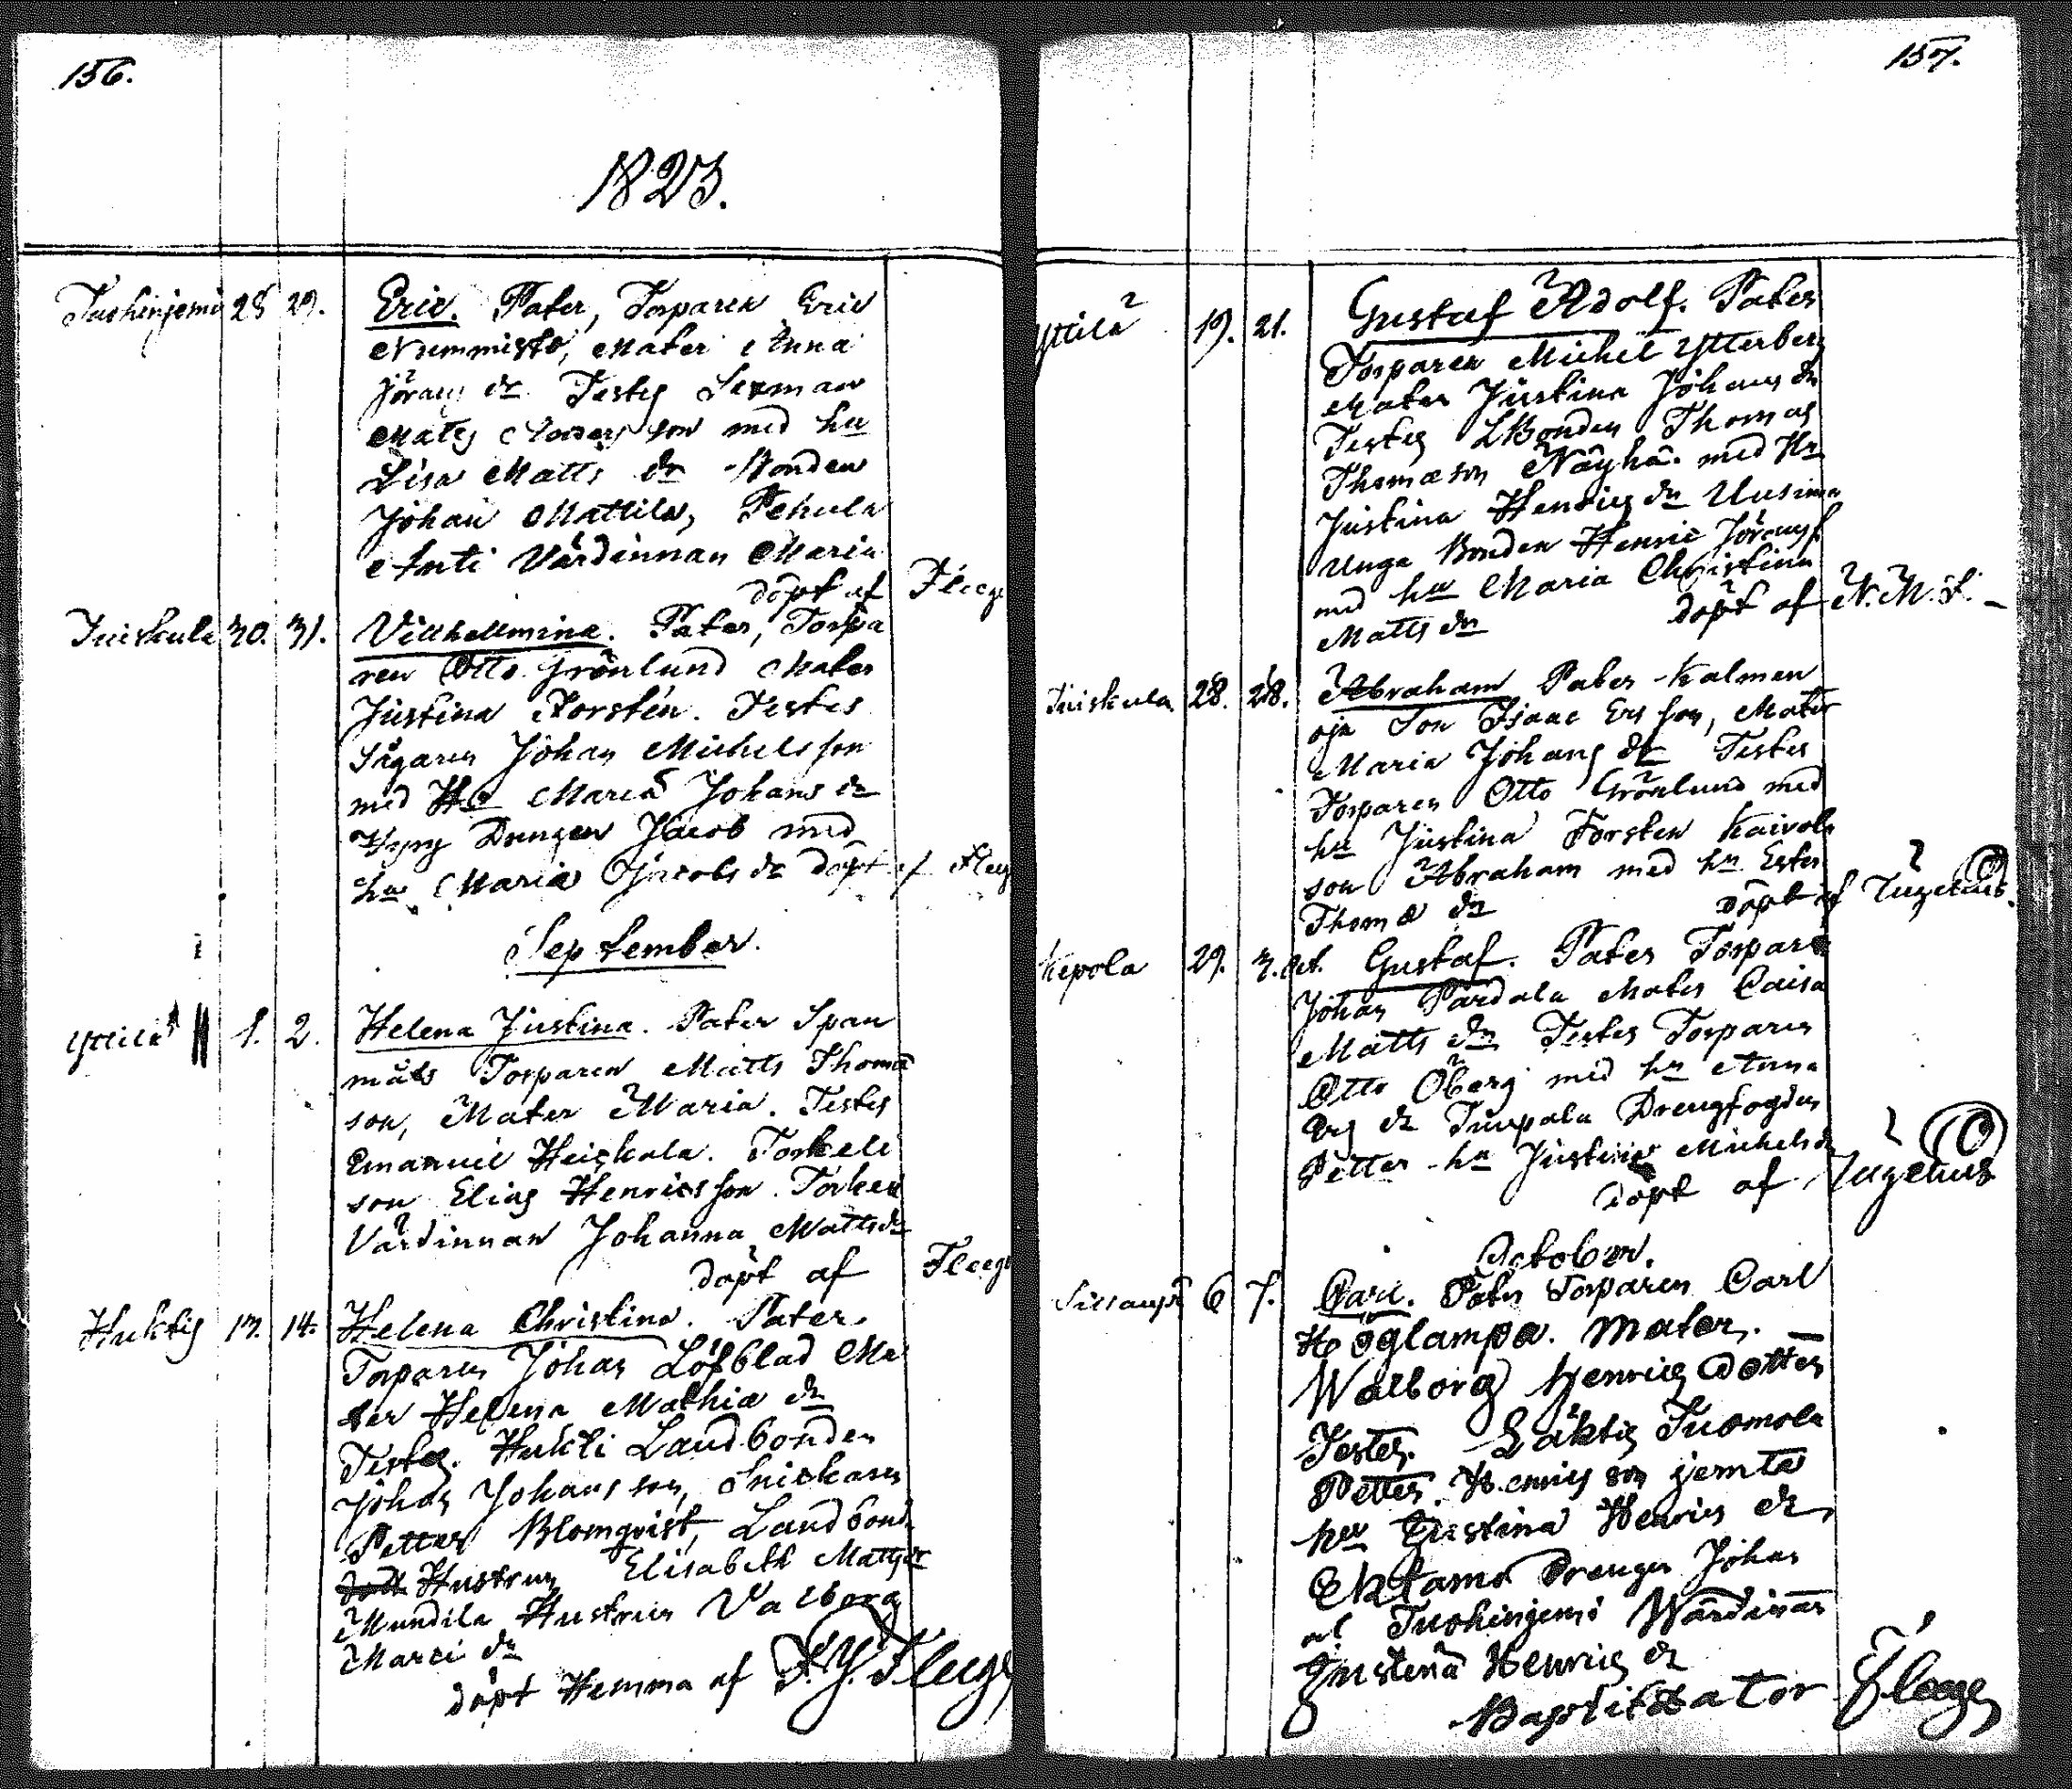 156.
1823.
28 29. Eric. Pater, Torparen Eric
Nummisto, Mater Anna
Jörans dr Testes Sexman
Mats Anders son med hu
Lisa Matts dr Bonden
Johan Mattila, Pehula
Anti Värdinnan Maria
döpt af Fleege
Juiskula 30. 31. Villhellmina. Pater, Torpa
ren Otto Grönlund Mater
Justina Forstén. Testes
Sågaren Johan Michelsson
med Hu Maria Johans dr
Hyry Drengen Jacob med
hu Maria Jacobs dr döpt af Fleeg
September.
Yttilä 1. 2. Helena Justina. Pater Span
måls Torparen Matts Thomæ
son, Mater Maria. Testes
Emanuel Heiskala. Torkeli
son Elias Henricsson. Torkeli
Värdinnan Johanna Matts dr
döpt af Fleege
Huktis 13. 14. Helena Christina. Pater
Torparen Johan Löfblad Ma
ter Helena Mathiæ dr
Testes. Hukti Landbonden
Johan Johans son, Snickaren
Petter Blomqvist, Landbond.
Hustrun Elisabeth Matts dr
Mundila Hustrun Valborg
Marci dr
döpt Hemma af F. Y. Fleege
157.
Yttilä 19. 21. Gustaf Adolf. Pater
Torparen Michel Ytterberg
Mater Justina Johans dr
Testes LBonden Thomas
Thomæson Näyhä. med Hu
Justina Henrics dr Uusima
Unga Bonden Henric Jöransf
med hu Maria Christina
Matts dr döpt af N. M. T. –
Juiskula 28. 28. Abraham Pater Kalmen
oja Son Isaac Ers son, Mater
Maria Johans dr Testes
Torparen Otto Grönlund med
hu Justina Forsten Kaivola
son Abraham med hu Ester
Thomæ dr döpt af
Kepola 29. 3. Oct. Gustaf. Pater Torparen
Johan Pardala Mater Caisa
Matts dr Testes Torparen
Otto Öberg med hu Anna
dr Tuupala Drengfogden
Petter hu Justina Michels dr
döpt af
October.
6 7. Carl. Pater Torparen Carl
Höglampa. Mater. –
Walborg Henrics Dotter
Testes. Läktis Tuomola
Petter. Henrics son jemte
hu Cristina Henrics dr,
Drengen Johan
al Tuohinjemi Wärdinan
Justina Henrics dr
Baptitzator Fleege